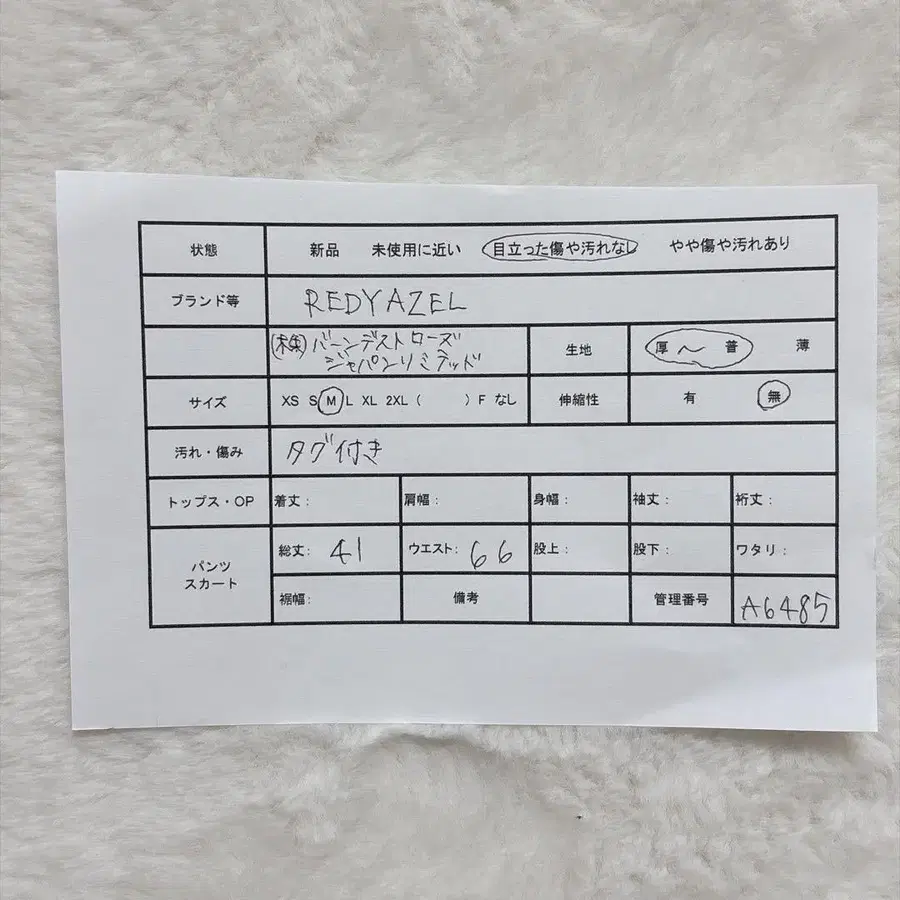 状態 新品 未使用に近い 目立った傷や汚れなし やや傷や汚れあり
ブランド等 REDYAZEL
(株)バーンデストローズ
ジャパンリミテッド
生地 厚 〜 普 薄
サイズ XS S M L XL 2XL ( ) F なし 伸縮性 有 無
汚れ・傷み タグ付き
トップス・OP 着丈: 肩幅: 身幅: 袖丈: 裄丈:
パンツ
スカート
総丈: 41 ウエスト: 66 股上: 股下: ワタリ:
裾幅: 備考 管理番号 A6485